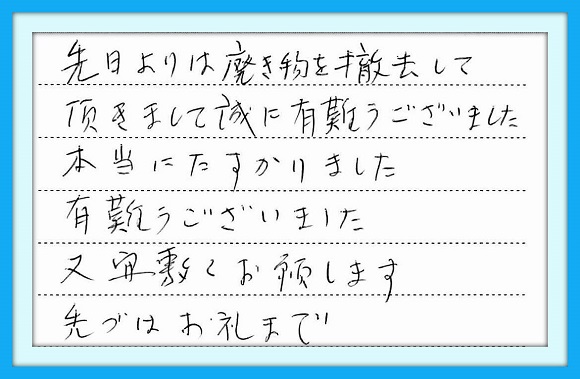 先日よりは廃き物を撤去して
頂きまして誠に有難うございました
本当にたすかりました
有難うございました
又宜敷くお願します
先づはお礼まで